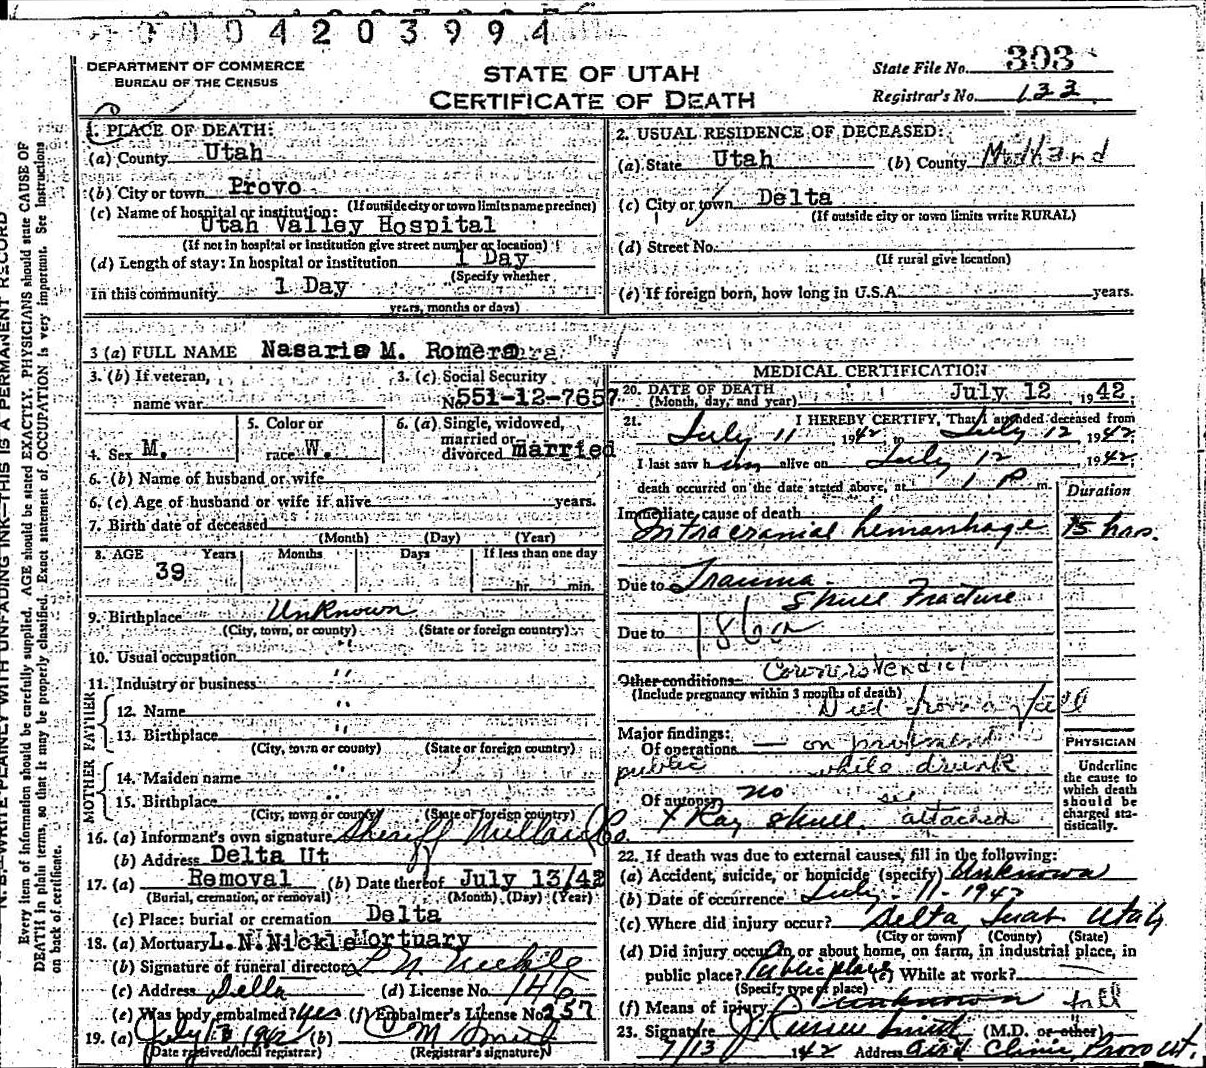 0 0 0 4 2 0 3 9 9 4
DEPARTMENT OF COMMERCE
BUREAU OF THE CENSUS
STATE OF UTAH
CERTIFICATE OF DEATH
State File No. 303
Registrar's No. 133
N.B.—WRITE PLAINLY WITH UNFADING INK—THIS IS A PERMANENT RECORD
Every item of information should be carefully supplied. AGE should be stated EXACTLY. PHYSICIANS should state CAUSE OF
DEATH in plain terms, so that it may be properly classified. Exact statement of OCCUPATION is very important. See Instructions
on back of certificate.
1. PLACE OF DEATH:
(a) County Utah
(b) City or town Provo
(If outside city or town limits name precinct)
(c) Name of hospital or institution:
Utah Valley Hospital
(If not in hospital or institution give street number or location)
(d) Length of stay: In hospital or institution 1 Day
(Specify whether
In this community 1 Day
years, months or days)
2. USUAL RESIDENCE OF DECEASED:
(a) State Utah (b) County
(c) City or town Delta
(If outside city or town limits write RURAL)
(d) Street No.
(If rural give location)
(e) If foreign born, how long in U.S.A. years.
3 (a) FULL NAME Nasario M. Romero
3. (b) If veteran,
name war
3. (c) Social Security
No. 551-12-7657
4. Sex M.
5. Color or
race W.
6. (a) Single, widowed,
married or
divorced married
6. (b) Name of husband or wife
6. (c) Age of husband or wife if alive years.
7. Birth date of deceased
(Month) (Day) (Year)
8. AGE Years Months Days If less than one day
39 hr. min.
9. Birthplace Unknown
(City, town, or county) (State or foreign country)
10. Usual occupation "
11. Industry or business "
FATHER
12. Name "
13. Birthplace "
(City, town or county) (State or foreign country)
MOTHER
14. Maiden name "
15. Birthplace "
(City, town or county) (State or foreign country)
16. (a) Informant's own signature Sheriff Millard Co.
(b) Address Delta Ut
17. (a) Removal (b) Date thereof July 13/42
(Burial, cremation, or removal) (Month) (Day) (Year)
(c) Place: burial or cremation Delta
18. (a) Mortuary L.N. Nickle Mortuary
(b) Signature of funeral director L N Nickle
(c) Address Delta (d) License No. 146
(e) Was body embalmed? yes (f) Embalmer's License No. 257
19. (a) July 13 1942 (b) C M Smith
(Date received local registrar) (Registrar's signature)
MEDICAL CERTIFICATION
20. DATE OF DEATH July 12, 1942
(Month, day, and year)
21. I HEREBY CERTIFY, That I attended deceased from
July 11 1942, to July 12, 1942
I last saw him alive on July 12, 1942,
death occurred on the date stated above, at 1 P m.
Duration
Immediate cause of death
Intracranial hemorrhage 15 hrs.
Due to Trauma
Skull Fracture
Due to 186a
Coroners Verdict
Other conditions
(Include pregnancy within 3 months of death)
Died from a fall
Major findings:
Of operations — on pavement
public while drunk
Of autopsy no see
X Ray skull. attached
PHYSICIAN
Underline
the cause to
which death
should be
charged sta-
tistically.
22. If death was due to external causes, fill in the following:
(a) Accident, suicide, or homicide (specify) Unknown
(b) Date of occurrence July 11 - 1942
(c) Where did injury occur? Delta, Utah
(City or town) (County) (State)
(d) Did injury occur in or about home, on farm, in industrial place, in
public place? Public place (e) While at work?
(Specify type of place)
(f) Means of injury unknown fall
23. Signature J Russell Smith (M.D. or other)
7/13 1942 Address Aird Clinic, Provo Ut.